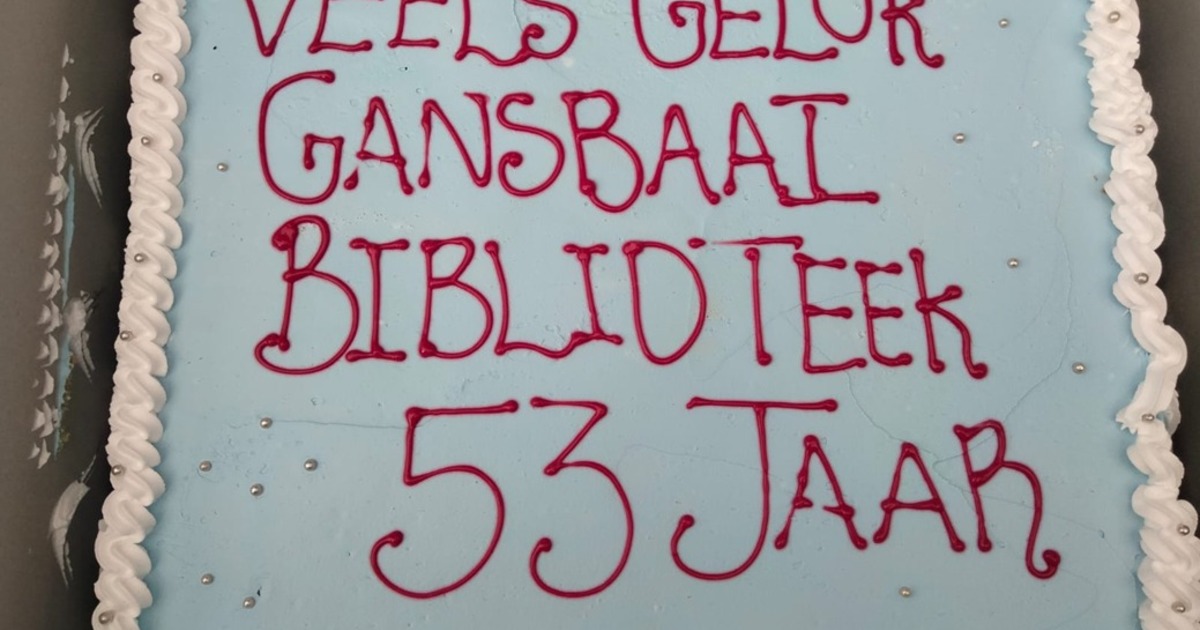 VEELS GELUK
GANSBAAI
BIBLIOTEEK
53 JAAR